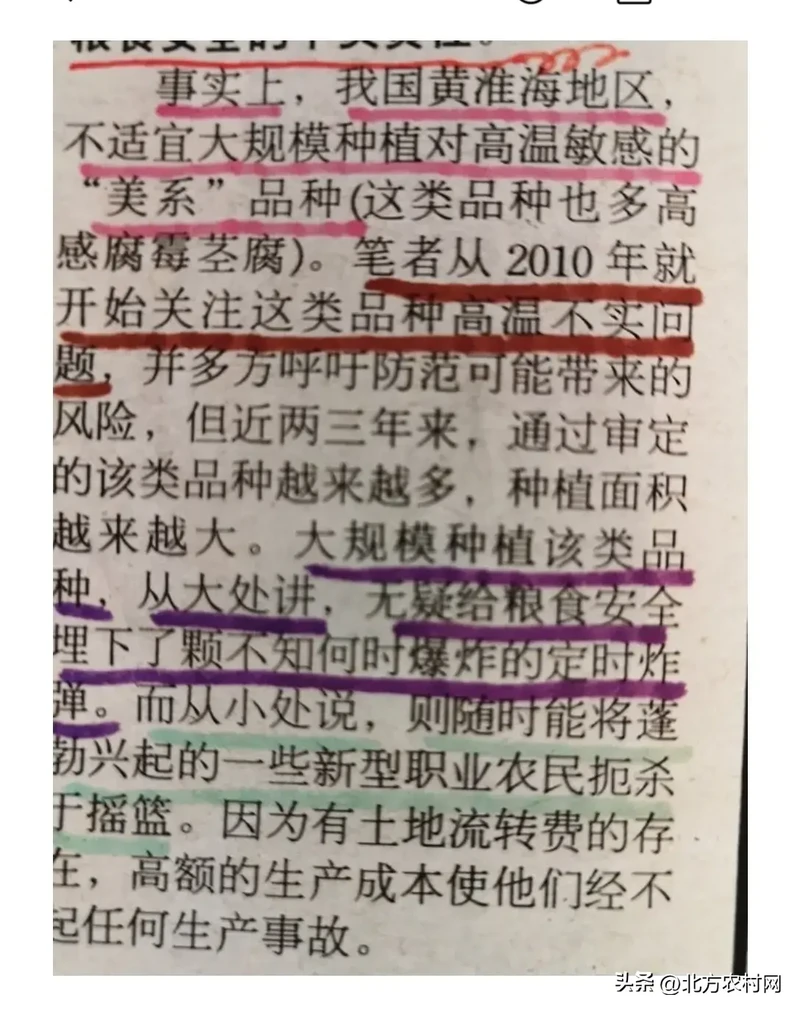 粮食安全的不负责任。
事实上，我国黄淮海地区，
不适宜大规模种植对高温敏感的
“美系”品种(这类品种也多高
感腐霉茎腐)。笔者从 2010 年就
开始关注这类品种高温不实问
题，并多方呼吁防范可能带来的
风险，但近两三年来，通过审定
的该类品种越来越多，种植面积
越来越大。大规模种植该类品
种，从大处讲，无疑给粮食安全
埋下了颗不知何时爆炸的定时炸
弹。而从小处说，则随时能将蓬
勃兴起的一些新型职业农民扼杀
于摇篮。因为有土地流转费的存
在，高额的生产成本使他们经不
起任何生产事故。
头条 @北方农村网